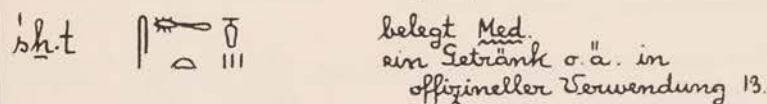 śẖ.t 𓋴𓄡𓏏𓏊𓏥 belegt Med.
ein Getränk o. ä. in
offizineller Verwendung 13.